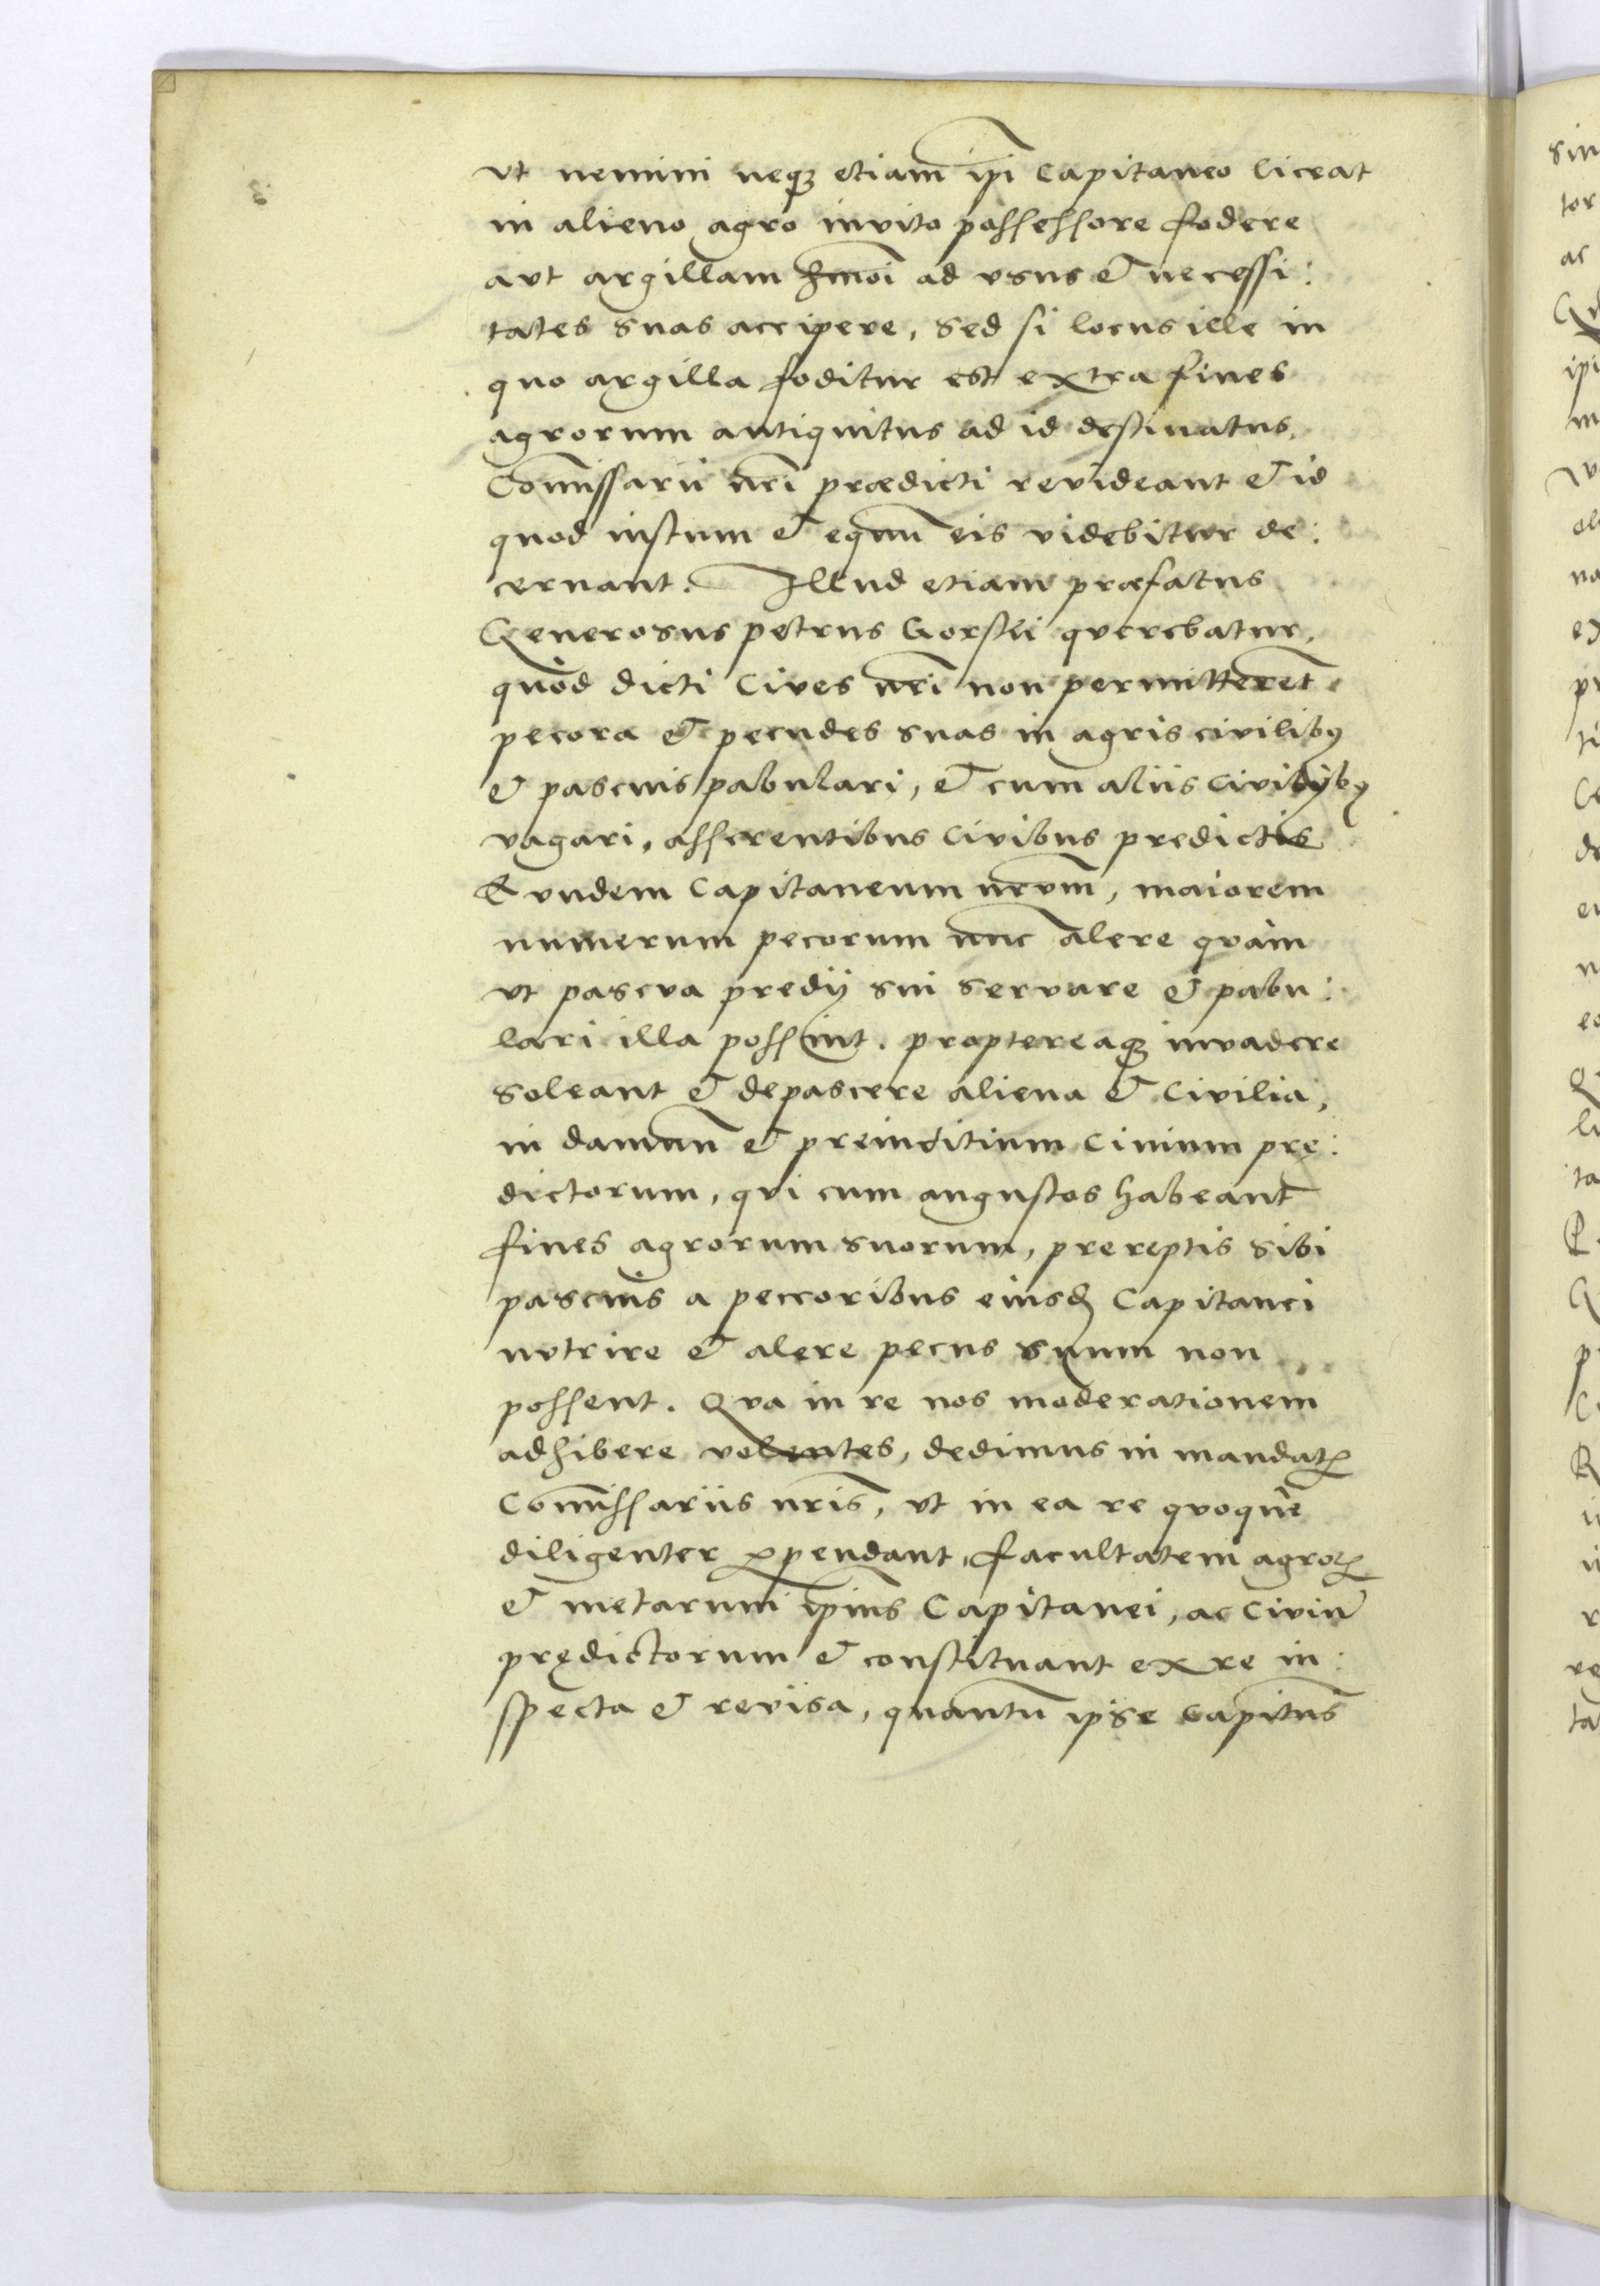 vt nemini neqꝫ etiam ip̄i Capitaneo liceat
in alieno agro inuito possessore fodere
avt argillam hm̄oi ad vsus et necessi:
tates suas accipere, sed si locus ille in
quo argilla foditur est extra fines
agrorum antiquitus ad id destinatus,
Com̄issarii nr̄i prædicti revideant et id
quod iustum et equm̄ eis videbitur de:
cernant. Illud etiam præfatus
Generosus petrus Gorskii qverebatur,
quòd dicti Cives nr̄i non permitteret̄
pecora et pecudes suas in agris civilibꝰ
et pascuis pabulari, et cum aliis
vagari, asserentibus Civibus predictis
Evndem Capitaneum nr̄vm, maiorem
numerum pecorum nunc alere qvàm
vt pascva predij sui servare et pabu:
lari illa possint. proptereaqꝫ invadere
soleant et depascere aliena et Civilia,
in damnū et preiuditium Ciuium prę:
dictorum, qvi cum angustos habeant
fines agrorum suorum, prereptis sibi
pascuis a peccoribus eiusdꝫ Capitanei
nvtrire et alere pecus suum non
possent. Qva in re nos moderationem
adhibere volentes, dedimus in mandatꝭ
Com̄issariis nr̄is, vt in ea re qvoque
diligenter ꝑpendant, facultatem agroꝝ
et metarum ip̄ius Capitanei, ac Civiū
prędictorum et constituant ex re in:
specta et revisa, quantū ipse Capitn̄s